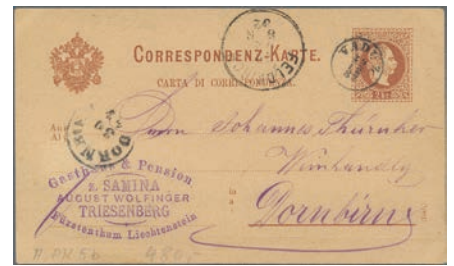 CORRESPONDENZ-KARTE.
CARTA DI CORRISPONDENZA.
VADUZ
FELDKIRCH
DORNBIRN
An
Al
Herrn Johannes Thurnher
Weinhandlg
in
a
Dornbirn
Gasthaus & Pension
z. SAMINA
AUGUST WOLFINGER
TRIESENBERG
Fürstenthum Liechtenstein
480,-